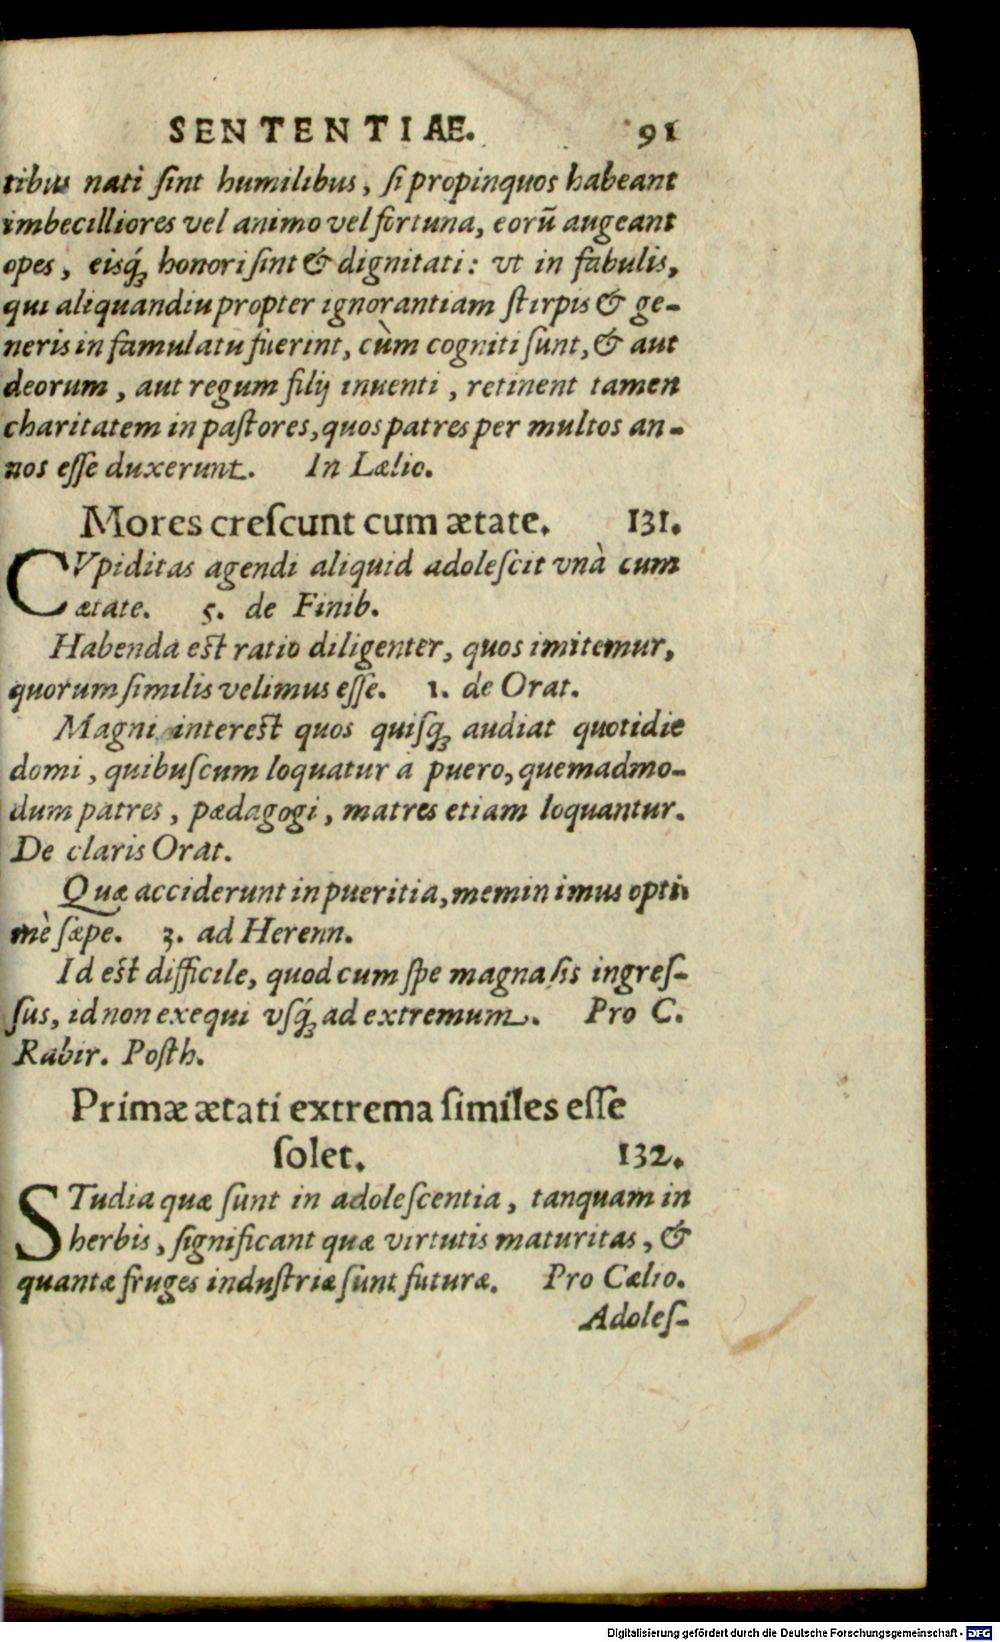 SENTENTIAE. 91
tibus nati ſint humilibus, ſi propinquos habeant
imbecilliores vel animo vel fortuna, eorũ augeant
opes, eisq́ꝫ honori ſint & dignitati: vt in fabulis,
qui aliquandiu propter ignorantiam ſtirpis & ge-
neris in famulatu fuerint, cùm cogniti ſunt, & aut
deorum, aut regum filij inuenti, retinent tamen
charitatem in paſtores, quos patres per multos an-
nos eſſe duxerunt. In Lælio.
Mores creſcunt cum ætate. 131.
CVpiditas agendi aliquid adoleſcit vnà cum
ætate. 5. de Finib.
Habenda eſt ratio diligenter, quos imitemur,
quorum ſimilis velimus eſſe. 1. de Orat.
Magni intereſt quos quiſqꝫ audiat quotidie
domi, quibuſcum loquatur a puero, quemadmo-
dum patres, pædagogi, matres etiam loquantur.
De claris Orat.
Quæ acciderunt in pueritia, meminimus opti
mè ſæpe. 3. ad Herenn.
Id eſt difficile, quod cum ſpe magna ſis ingreſ-
ſus, id non exequi vſq́ꝫ ad extremum. Pro C.
Rabir. Poſth.
Primæ ætati extrema ſimiles eſſe
ſolet. 132.
STudia quæ ſunt in adoleſcentia, tanquam in
herbis, ſignificant quæ virtutis maturitas, &
quantæ fruges induſtriæ ſunt futuræ. Pro Cælio.
Adoleſ-
Digitalisierung gefördert durch die Deutsche Forschungsgemeinschaft - DFG